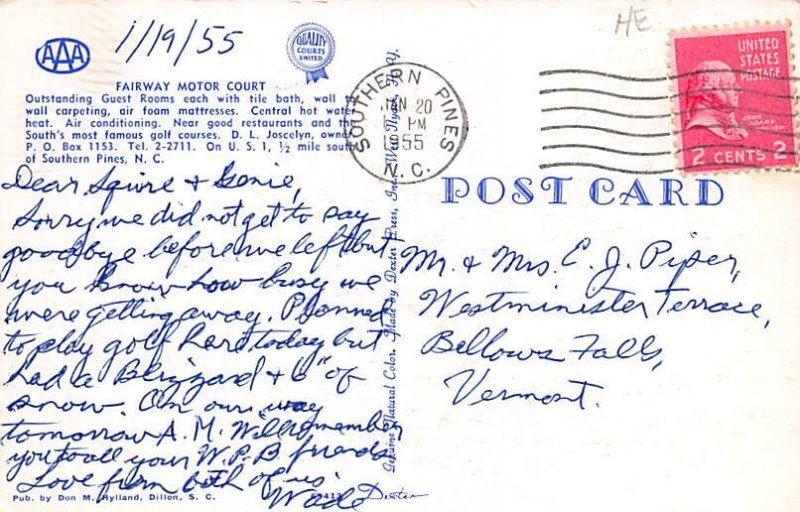 1/19/55
AAA
QUALITY
COURTS
UNITED
HE
FAIRWAY MOTOR COURT
Outstanding Guest Rooms each with tile bath, wall to
wall carpeting, air foam mattresses. Central hot water
heat. Air conditioning. Near good restaurants and the
South's most famous golf courses. D. L. Joscelyn, owner
P. O. Box 1153. Tel. 2-2711. On U. S. 1, ½ mile south
of Southern Pines, N. C.
Dear Squire + Genie,
Sorry we did not get to say
goodbye before we left but
you know how busy we
were getting away. Planned
to play golf here today but
had a Blizzard + 6" of
snow. On our way
tomorrow A. M. Will remember
you to all your W. P. B friends
Love from both of us
Wade
Pub. by Don M. Hylland, Dillon, S. C.
Dexter
Genuine Natural Color. Made by Dexter Press, Inc. West Nyack, N. Y.
SOUTHERN PINES
JAN 20
PM
1955
N. C.
UNITED
STATES
POSTAGE
JOHN
ADAMS
2 CENTS 2
POST CARD
Mr. & Mrs. E. J. Piper,
Westminister Terrace,
Bellows Falls,
Vermont.